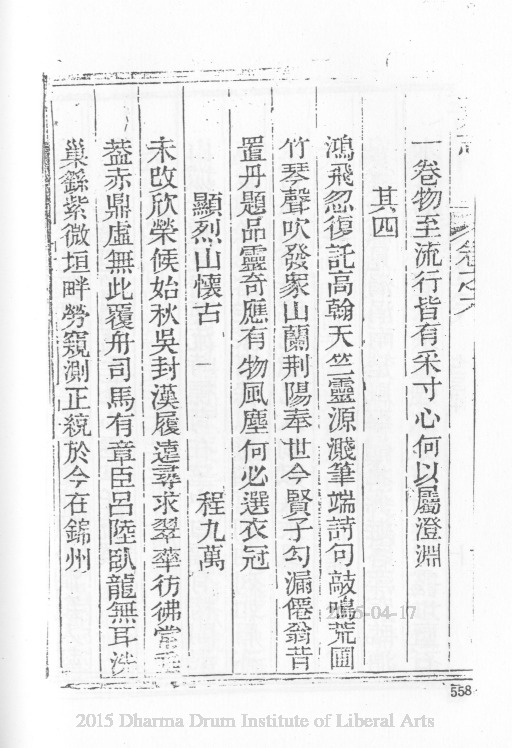 一卷物至流行皆有采寸心何以屬澄淵
其四
鴻飛忽復託高翰天竺靈源濺筆端詩句敲鳴荒圃
竹琴聲吹發家山蘭荆陽奉世今賢子勾漏僊翁昔
置丹題品靈奇應有物風塵何必選衣冠
顯烈山懷古 程九萬
未改欣榮候始秋吳封漢履遠尋求翠華彷彿當
葢赤鼎虛無此覆舟司馬有章臣呂陸臥龍無耳洗
巢繇紫微垣畔勞窺測正統於今在錦州
卷之六
2015-04-17
558
2015 Dharma Drum Institute of Liberal Arts